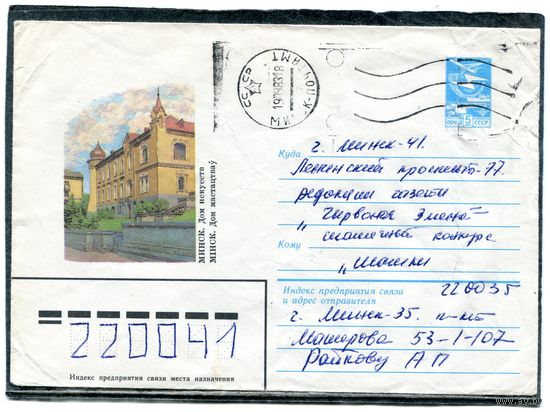 СССР
МИНСК ПОЧТАМТ
190983 18
ПОЧТА 5 К СССР
МИНСК. Дом искусств
МІНСК. Дом мастацтваў
Куда
г. Минск-41.
Ленинский проспект-77.
редакция газеты
„Чырвоная Змена"
шашечный конкурс
Кому
„Шашки
Индекс предприятия связи
и адрес отправителя
220035
г. Минск-35. п-кт
Машерова 53-1-107
Райкову А П
220041
Индекс предприятия связи места назначения